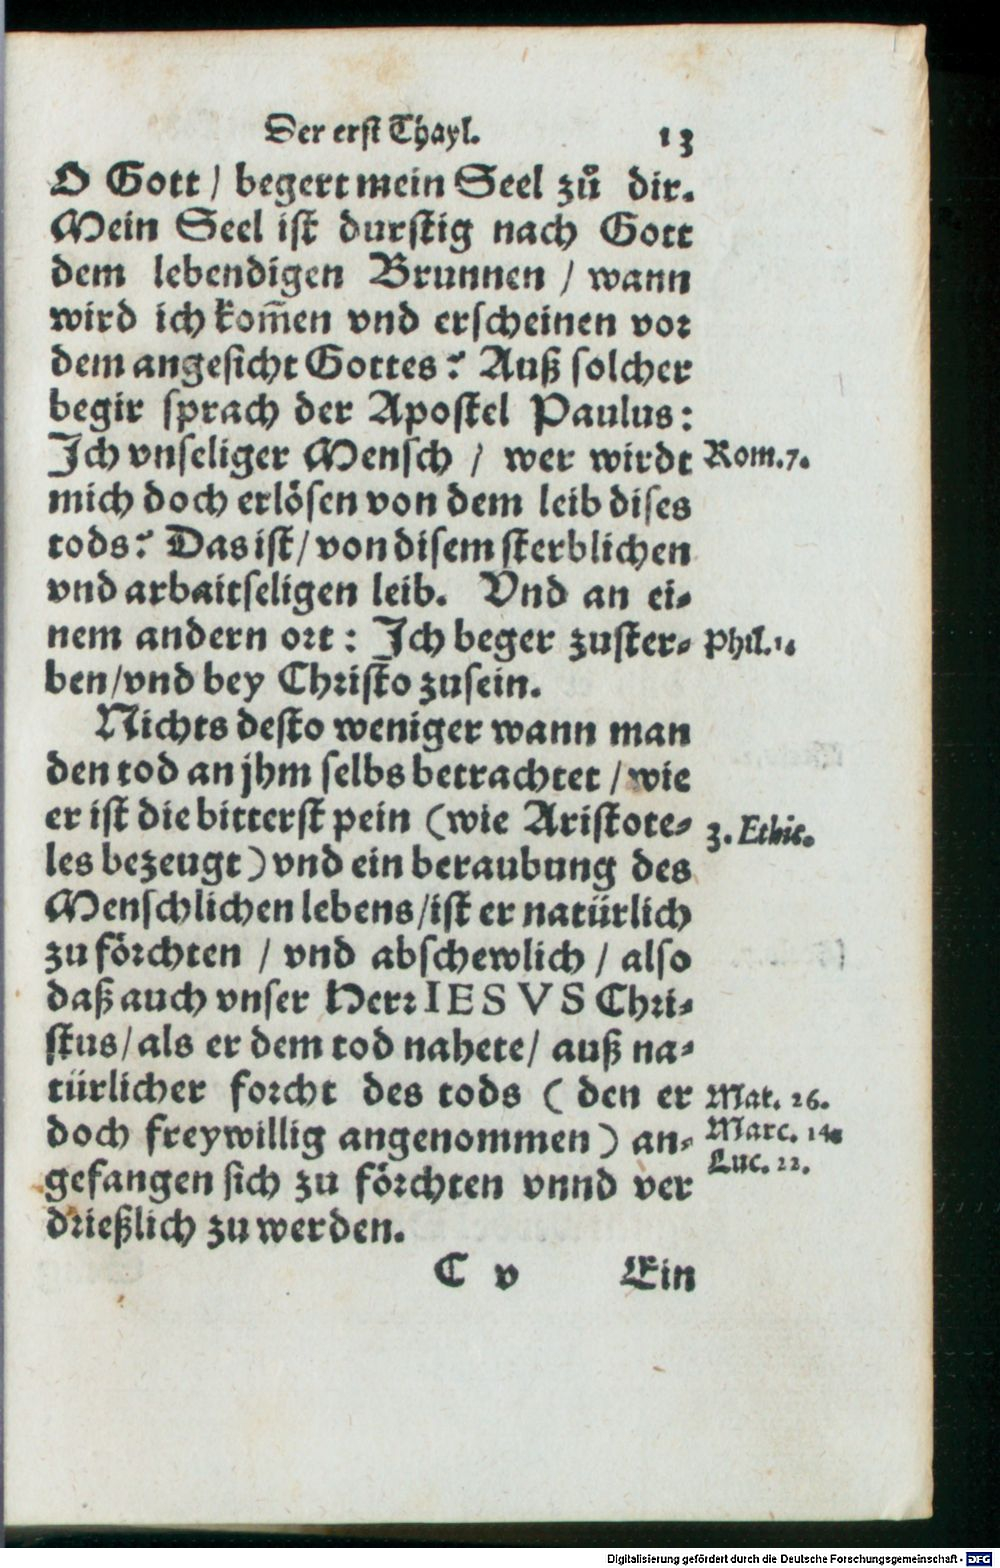 Der erst Thayl. 13
O Gott / begert mein Seel zů dir.
Mein Seel ist durstig nach Gott
dem lebendigen Brunnen / wann
wird ich kom̅en vnd erscheinen vor
dem angesicht Gottes? Auß solcher
begir sprach der Apostel Paulus:
Ich vnseliger Mensch / wer wirdt Rom.7.
mich doch erlösen von dem leib dises
tods? Das ist / von disem sterblichen
vnd arbaitseligen leib. Vnd an ei-
nem andern ort: Ich beger zuster- Phil.1.
ben/vnd bey Christo zusein.
Nichts desto weniger wann man
den tod an jhm selbs betrachtet / wie
er ist die bitterst pein (wie Aristote- 3. Ethic.
les bezeugt) vnd ein beraubung des
Menschlichen lebens/ist er natürlich
zu förchten / vnd abschewlich / also
daß auch vnser Herr IESVS Chri-
stus/als er dem tod nahete/ auß na-
türlicher forcht des tods (den er Mat. 26.
doch freywillig angenommen) an- Marc. 14.
gefangen sich zu förchten vnnd ver Luc. 22.
drießlich zu werden.
C v Ein
Digitalisierung gefördert durch die Deutsche Forschungsgemeinschaft - DFG